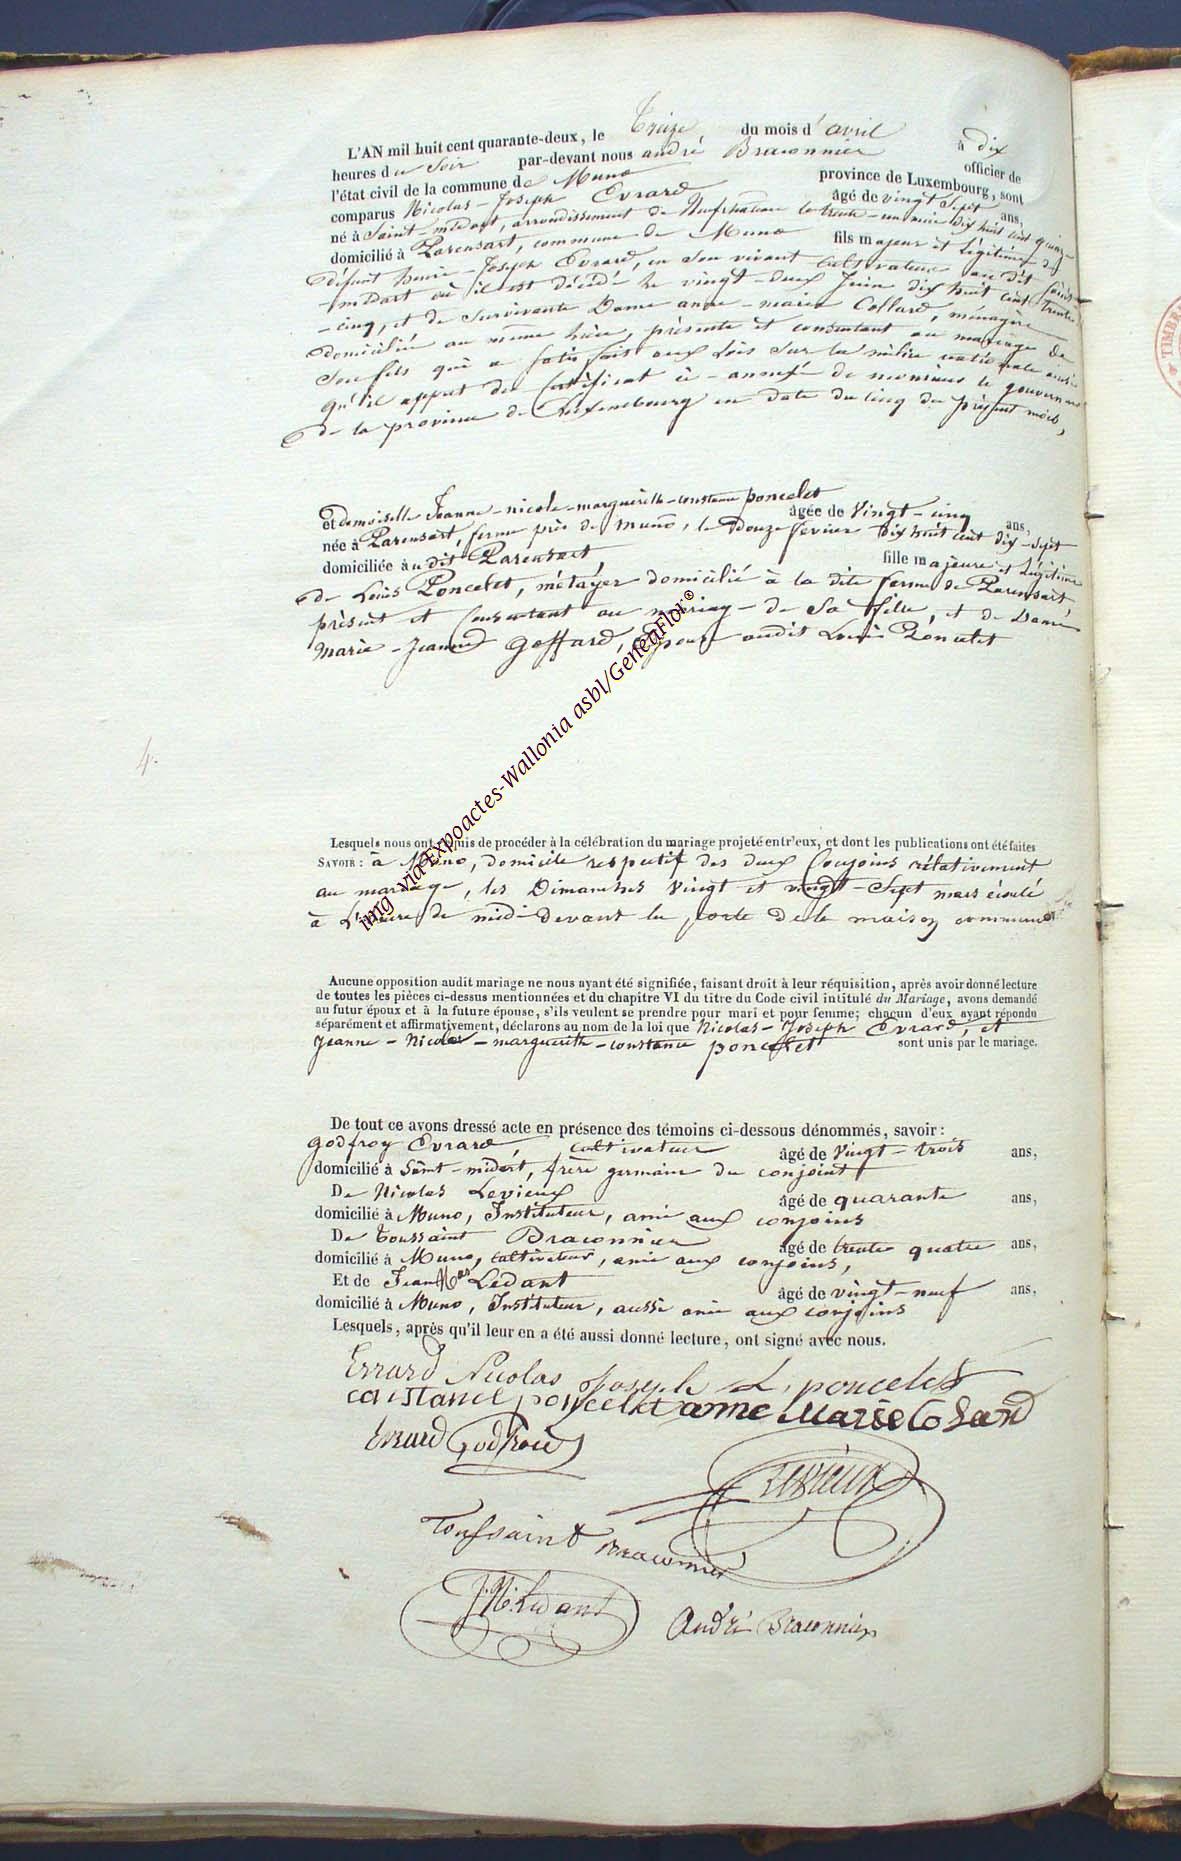 L'AN mil huit cent quarante-deux, le Treize, du mois d'avril à dix
heures du Soir par-devant nous andré Braconnier officier de
l'état civil de la commune de Muno province de Luxembourg, sont
comparus Nicolas-Joseph Evrard âgé de vingt Sept ans,
né à Saint-médart, arrondissement de Neufchateau le trente-un mai dix huit cent quinze
domicilié à Parensart, commune de Muno fils majeur et légitime de
défunt henri-Joseph Evrard, en son vivant cultivateur au dit Saint
-médart où il est décédé le vingt-deux Juin dix huit cent trente
-cinq, et de survivante Dame anne-marie Collard, ménagère
domiciliée au même lieu, présente et consentant au mariage de
son fils qui a satisfait aux lois sur la milice nationale ainsi
qu'il appert du Certificat ci-annexé de monsieur le gouverneur
de la province de Luxembourg en date du cinq du présent mois,
et demoiselle Jeanne-nicole-marguerith-constance poncelet âgée de Vingt-cinq ans,
née à Parensart, ferme près de muno, le Douze fevrier dix huit cent dix-sept
domiciliée audit Parensart, fille majeure et légitime
de Louis Poncelet, métayer domicilié à la dite ferme de Parensart
présent et Consentant au mariage de Sa fille, et de Dame
Marie-Jeanne Goffard, épouse audit Louis Poncelet
4.
Lesquels nous ont requis de procéder à la célébration du mariage projeté entr'eux, et dont les publications ont été faites
SAVOIR : à Muno, domicile respectif des deux Conjoins rélativement
au mariage, les Dimanches Vingt et vingt-Sept mars écoulé
à L'heure de midi devant la porte de la maison commune
Aucune opposition audit mariage ne nous ayant été signifiée, faisant droit à leur réquisition, après avoir donné lecture
de toutes les pièces ci-dessus mentionnées et du chapitre VI du titre du Code civil intitulé du Mariage, avons demandé
au futur époux et à la future épouse, s'ils veulent se prendre pour mari et pour femme; chacun d'eux ayant répondu
séparément et affirmativement, déclarons au nom de la loi que Nicolas-Joseph Evrard, et
Jeanne-Nicole-marguerith-constance poncelet sont unis par le mariage.
De tout ce avons dressé acte en présence des témoins ci-dessous dénommés, savoir :
godfroy Evrard, cultivateur âgé de Vingt-trois ans,
domicilié à Saint-médart, frère germain du conjoint
De Nicolas Levieux âgé de quarante ans,
domicilié à Muno, Instituteur, ami aux conjoins
De Toussaint Braconnier âgé de trente quatre ans,
domicilié à Muno, cultivateur, ami aux conjoins,
Et de Jean Nas Ledant âgé de vingt-neuf ans,
domicilié à Muno, Instituteur, aussi ami aux conjoins
Lesquels, après qu'il leur en a été aussi donné lecture, ont signé avec nous.
Evrard Nicolas Joseph L. poncelet
constance poncelet anne Marie Colard
Evrard Godfroid
Levieux
Toussaint Braconnier
J. N. Ledant
André Braconnier
img via Expoactes-Wallonia asbl/GeneaFlor®
TIMBRE